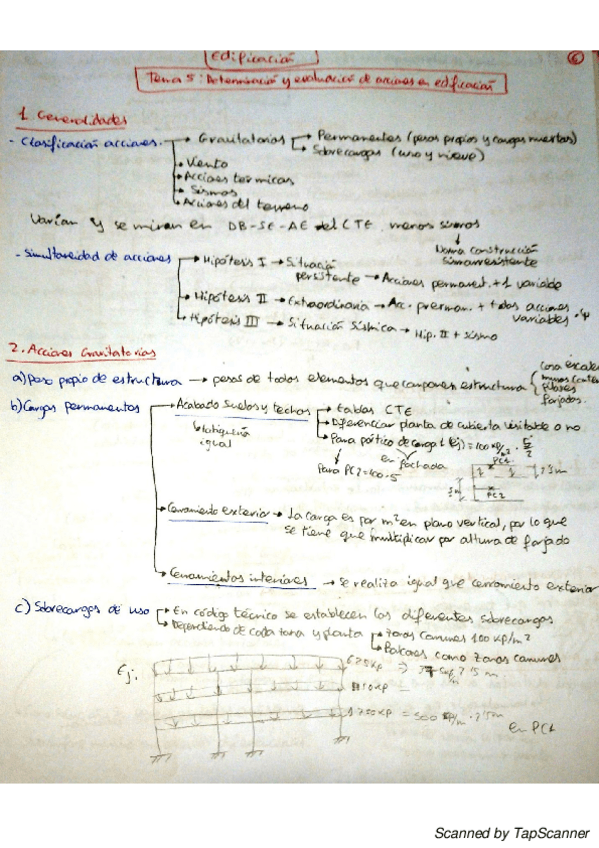 Edificación
6
Tema 5: Determinación y evaluación de acciones en edificación
1. Generalidades
- Clasificación acciones. → Gravitatorias → Permanentes (pesos propios y cargas muertas)
→ Sobrecargas (uso y nieve)
→ Viento
→ Acciones térmicas
→ Sismos
→ Acciones del terreno
Varían y se miran en DB-SE-AE del CTE, menos sismos
↓
Norma construcción
sismorresistente
- Simultaneidad de acciones → Hipótesis I → Situación
persistente → Acciones permanent. + 1 variable
→ Hipótesis II → Extraordinaria → Acc. perman. + todas acciones
variables · ψ
→ Hipótesis III → Situación Sísmica → Hip. II + sismo
2. Acciones Gravitatorias
a) Peso propio de estructura → pesos de todos elementos que componen estructura
pilares
forjados.
b) Cargas Permanentes → Acabado suelos y techos → tablas CTE
→ Diferenciar planta de cubierta visitable o no
igual
→ Para pórtico de carga
en fachada
Para PC2 = 100 · 5
PC1
PC2
→ Cerramiento exterior → La carga es por m² en plano vertical, por lo que
se tiene que multiplicar por altura de forjado
→ Cerramientos interiores → Se realiza igual que cerramiento exterior
c) Sobrecargas de uso → En código técnico se establecen las diferentes sobrecargas
→ Dependiendo de cada zona y planta → Zonas comunes 100 kp/m²
→ Balcones como zonas comunes
Ej:
en PC1
Scanned by TapScanner